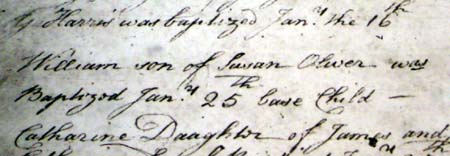 Harris was baptized Jan.y the 16th
William son of Susan Oliver was
Baptized Jan.y 25th base Child —
Catharine Daughter of James and